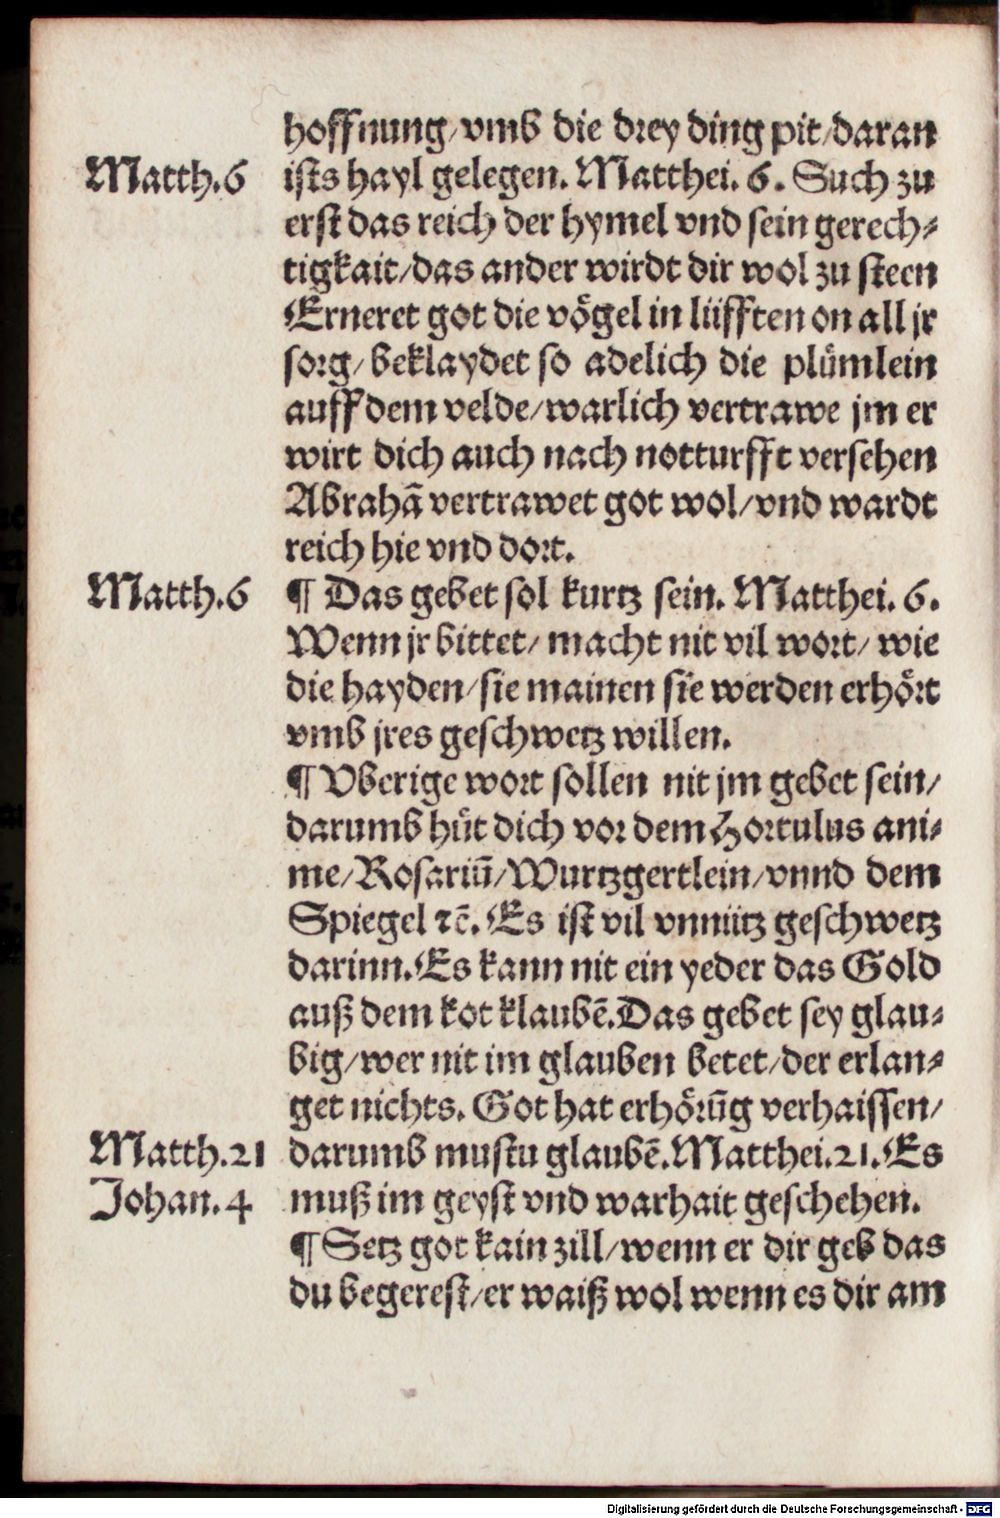 hoffnung/vmb die drey ding pit/daran
Matth.6 ists hayl gelegen. Matthei. 6. Such zu
erst das reich der hymel vnd sein gerech⸗
tigkait/das ander wirdt dir wol zu steen
Erneret got die vögel in lüfften on all jr
sorg/ beklaydet so adelich die plümlein
auff dem velde/warlich vertrawe jm er
wirt dich auch nach notturfft versehen
Abrahā vertrawet got wol/vnd wardt
reich hie vnd dort.
Matth.6 ¶ Das gebet sol kurtz sein. Matthei. 6.
Wenn jr bittet/ macht nit vil wort/ wie
die hayden/sie mainen sie werden erhört
vmb jres geschwetz willen.
¶ Vberige wort sollen nit jm gebet sein/
darumb hüt dich vor dem Hortulus ani⸗
me/Rosariū/Wurtzgertlein/vnnd dem
Spiegel ⁊c̄. Es ist vil vnnütz geschwetz
darinn.Es kann nit ein yeder das Gold
auß dem kot klaubē.Das gebet sey glau⸗
big/wer nit im glauben betet/der erlan⸗
get nichts. Got hat erhörūg verhaissen/
Matth.21 darumb mustu glaubē.Matthei.21.Es
Johan.4 muß im geyst vnd warhait geschehen.
¶ Setz got kain zill/wenn er dir geb das
du begerest/er waiß wol wenn es dir am
Digitalisierung gefördert durch die Deutsche Forschungsgemeinschaft - DFG